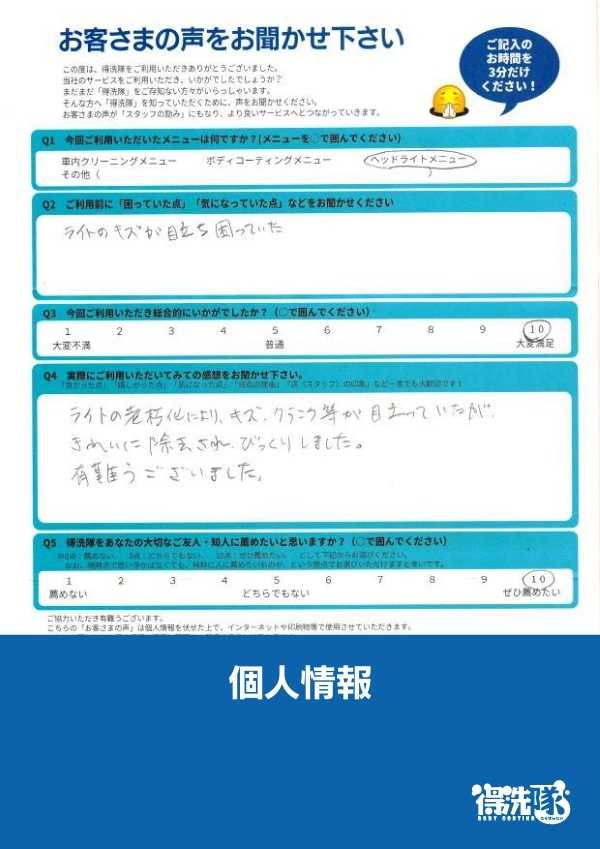 お客さまの声をお聞かせ下さい
ご記入の
お時間を
3分だけ
ください！
この度は、得洗隊をご利用いただきありがとうございました。
当社のサービスをご利用いただき、いかがでしたでしょうか？
まだまだ「得洗隊」をご存知ない方々がいらっしゃいます。
そんな方へ「得洗隊」を知っていただくために、声をお聞かせください。
お客さまの声が「スタッフの励み」にもなり、より良いサービスへとつながっていきます。
Q1 今回ご利用いただいたメニューは何ですか？(メニューを○で囲んでください)
車内クリーニングメニュー ボディコーティングメニュー ヘッドライトメニュー
その他（ ）
Q2 ご利用前に「困っていた点」「気になっていた点」などをお聞かせください
ライトのキズが目立ち困っていた
Q3 今回ご利用いただき総合的にいかがでしたか？（○で囲んでください）
1 2 3 4 5 6 7 8 9 10
大変不満 普通 大変満足
Q4 実際にご利用いただいてみての感想をお聞かせ下さい。
「良かった点」「嬉しかった点」「気になった点」「成約の理由」「店（スタッフ）の印象」など一言でも大歓迎です！
ライトの老朽化により、キズ、クラック等が目立っていたが、
きれいに除去され、びっくりしました。
有難うございました。
Q5 得洗隊をあなたの大切なご友人・知人に薦めたいと思いますか？（○で囲んでください）
1 2 3 4 5 6 7 8 9 10
薦めない どちらでもない ぜひ薦めたい
ご協力いただき有難うございます。
こちらの「お客さまの声」は個人情報を伏せた上で、インターネットや印刷物等で使用させていただきます。
個人情報
得洗隊
BODY COATING